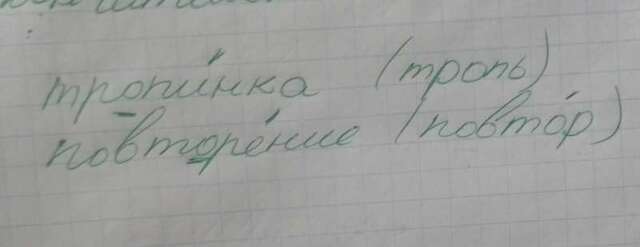 тропи́нка (тропь)
повторе́ние (повто́р)